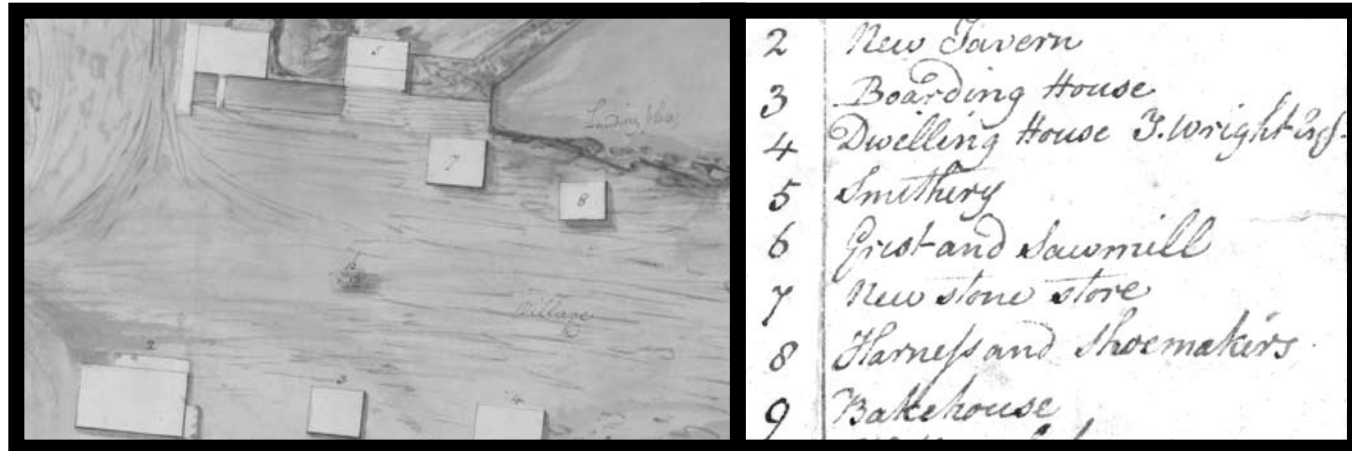 5
Landing place
7
8
Village
2
3
4
2 New Tavern
3 Boarding House
4 Dwelling House T. Wright Esq.
5 Smithery
6 Grist and Sawmill
7 New stone store
8 Harneſs and Shoemakers.
9 Bakehouse